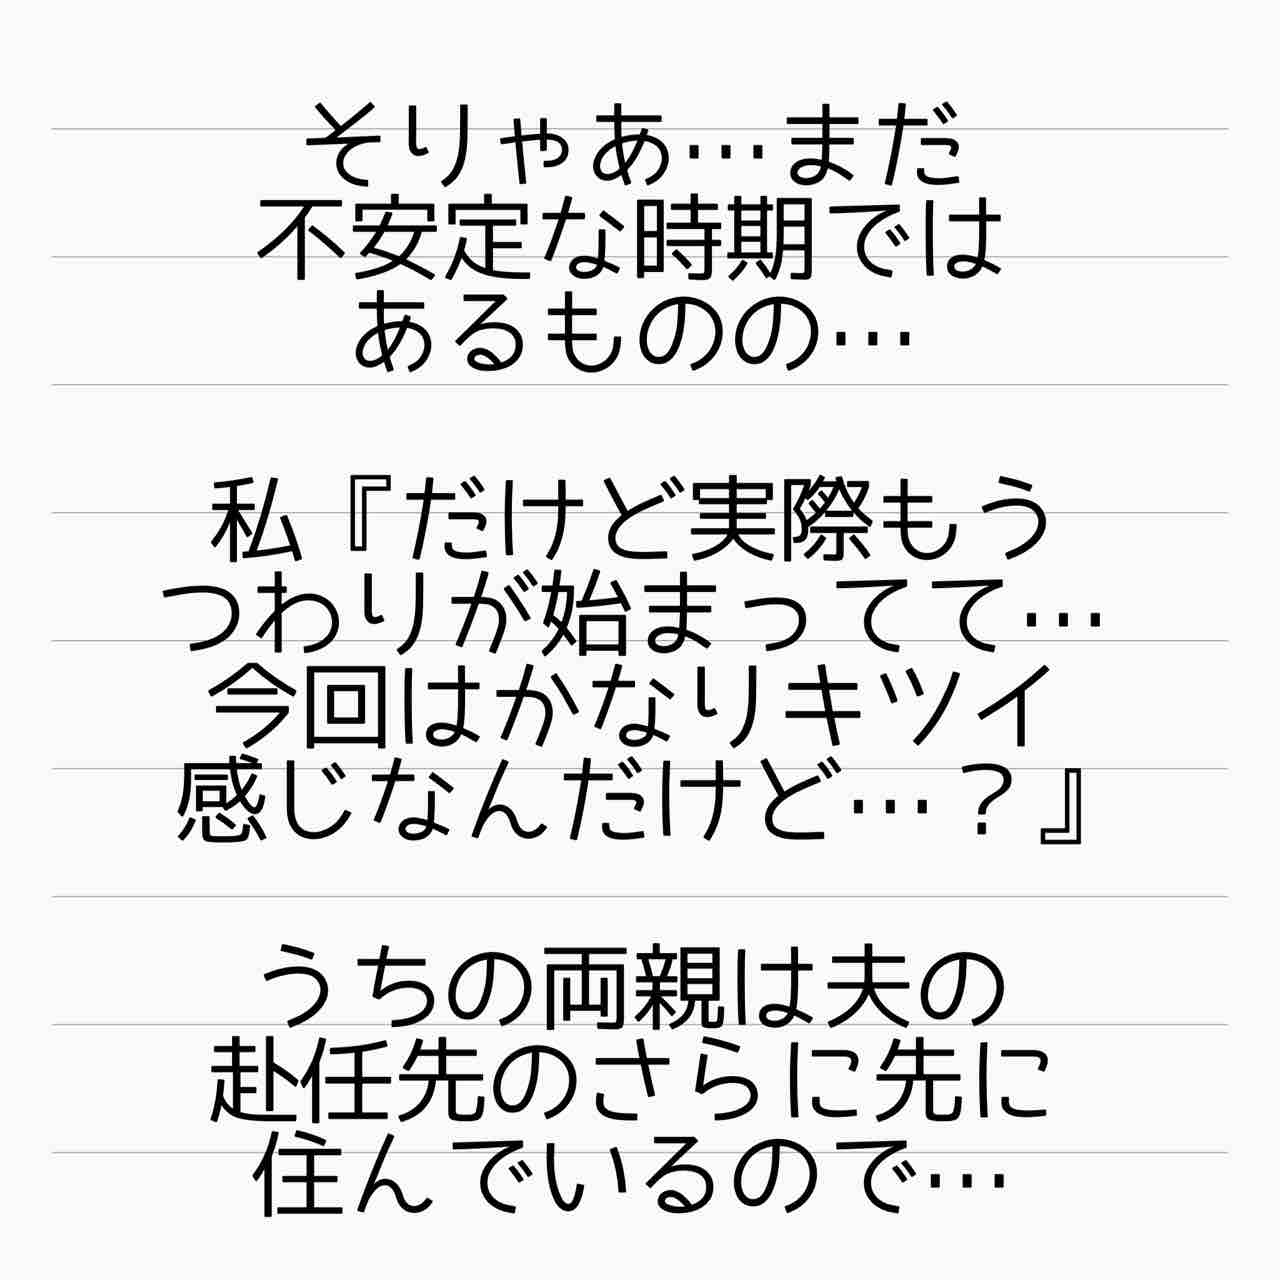 そりゃあ…まだ
不安定な時期では
あるものの…
私『だけど実際もう
つわりが始まってて…
今回はかなりキツイ
感じなんだけど…？』
うちの両親は夫の
赴任先のさらに先に
住んでいるので…